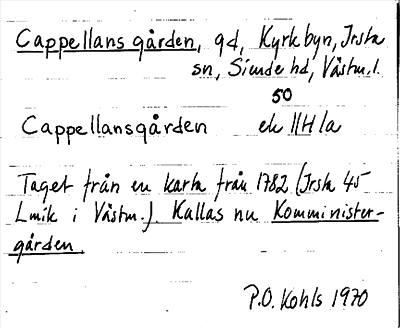 Cappellans gården, gd, Kyrkbyn, Irsta
sn, Siende hd, Västm. l.
50
Cappellansgården ek 11H 1a
Taget från en karta från 1782 (Irsta 45
Lmïk i Västm.). Kallas nu Komminister-
gården.
P.O. Kohls 1970